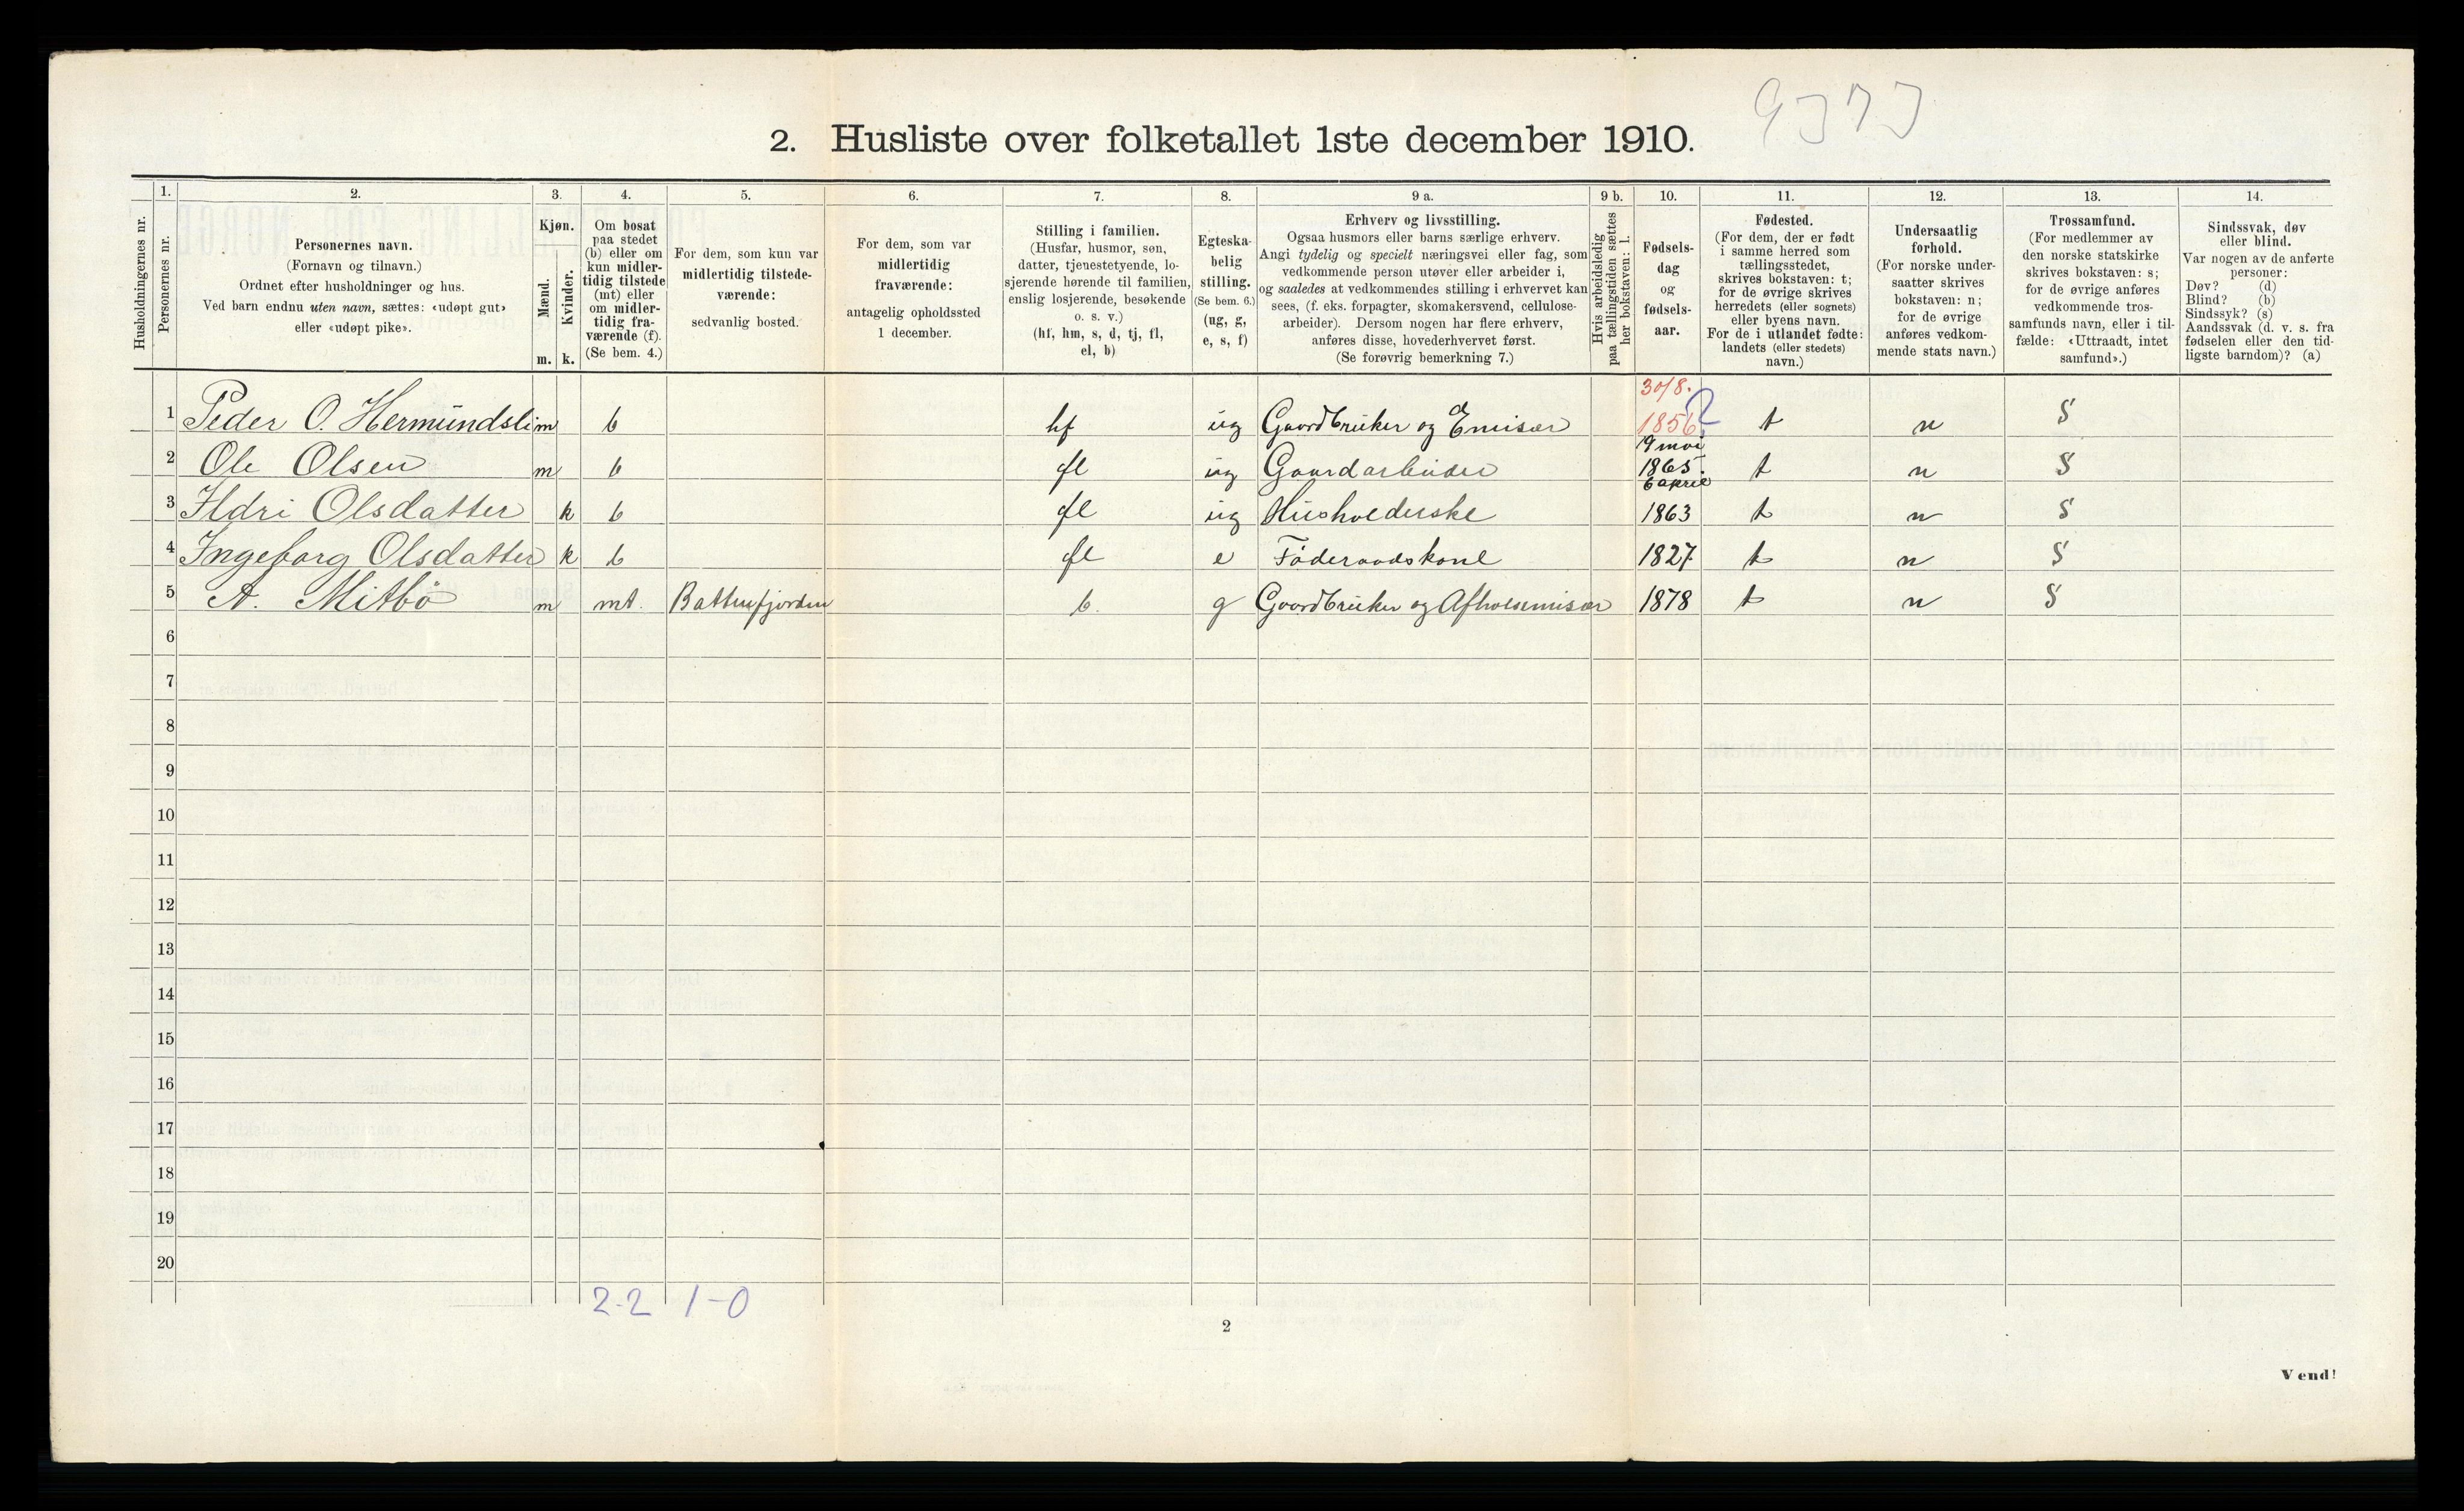 2. Husliste over folketallet 1ste december 1910.
Husholdningernes nr.
1.
Personernes nr.
2.
Personernes navn.
(Fornavn og tilnavn.)
Ordnet efter husholdninger og hus.
Ved barn endnu uten navn, sættes: «udøpt gut»
eller «udøpt pike».
3.
Kjøn.
Mænd.
Kvinder.
m. k.
4.
Om bosat
paa stedet
(b) eller om
kun midler-
tidig tilstede
(mt) eller
om midler-
tidig fra-
værende (f).
(Se bem. 4.)
5.
For dem, som kun var
midlertidig tilstede-
værende:
sedvanlig bosted.
6.
For dem, som var
midlertidig
fraværende:
antagelig opholdssted
1 december.
7.
Stilling i familien.
(Husfar, husmor, søn,
datter, tjenestetyende, lo-
sjerende hørende til familien,
enslig losjerende, besøkende
o. s. v.)
(hf, hm, s, d, tj, fl,
el, b)
8.
Egteska-
belig
stilling.
(Se bem. 6.)
(ug, g,
e, s, f)
9 a.
Erhverv og livsstilling.
Ogsaa husmors eller barns særlige erhverv.
Angi tydelig og specielt næringsvei eller fag, som
vedkommende person utøver eller arbeider i,
og saaledes at vedkommendes stilling i erhvervet kan
sees, (f. eks. forpagter, skomakersvend, cellulose-
arbeider). Dersom nogen har flere erhverv,
anføres disse, hovederhvervet først.
(Se forøvrig bemerkning 7.)
9 b.
Hvis arbeidsledig
paa tællingstiden sættes
her bokstaven: l.
10.
Fødsels-
dag
og
fødsels-
aar.
11.
Fødested.
(For dem, der er født
i samme herred som
tællingsstedet,
skrives bokstaven: t;
for de øvrige skrives
herredets (eller sognets)
eller byens navn.
For de i utlandet fødte:
landets (eller stedets)
navn.)
12.
Undersaatlig
forhold.
(For norske under-
saatter skrives
bokstaven: n;
for de øvrige
anføres vedkom-
mende stats navn.)
13.
Trossamfund.
(For medlemmer av
den norske statskirke
skrives bokstaven: s;
for de øvrige anføres
vedkommende tros-
samfunds navn, eller i til-
fælde: «Uttraadt, intet
samfund».)
14.
Sindssvak, døv
eller blind.
Var nogen av de anførte
personer:
Døv? (d)
Blind? (b)
Sindssyk? (s)
Aandssvak (d. v. s. fra
fødselen eller den tid-
ligste barndom)? (a)
30/8.
1 Peder O. Hermundsli m b hf ug Gaardbruker og Emisær 1856 ? t n S
19 mai
2 Ole Olsen m b fl ug Gaardarbeider 1865. t n S
6 april
3 Ildri Olsdatter k b fl ug Husholderske 1863 t n S
4 Ingeborg Olsdatter k b fl e Föderaadskone 1827 t n S
5 A. Mitbö m mt. Battenfjorden b. g Gaardbruker og Afholsemisær 1878 t n S
6
7
8
9
10
11
12
13
14
15
16
17
18
19
20
2-2 1-0
2
Vend!